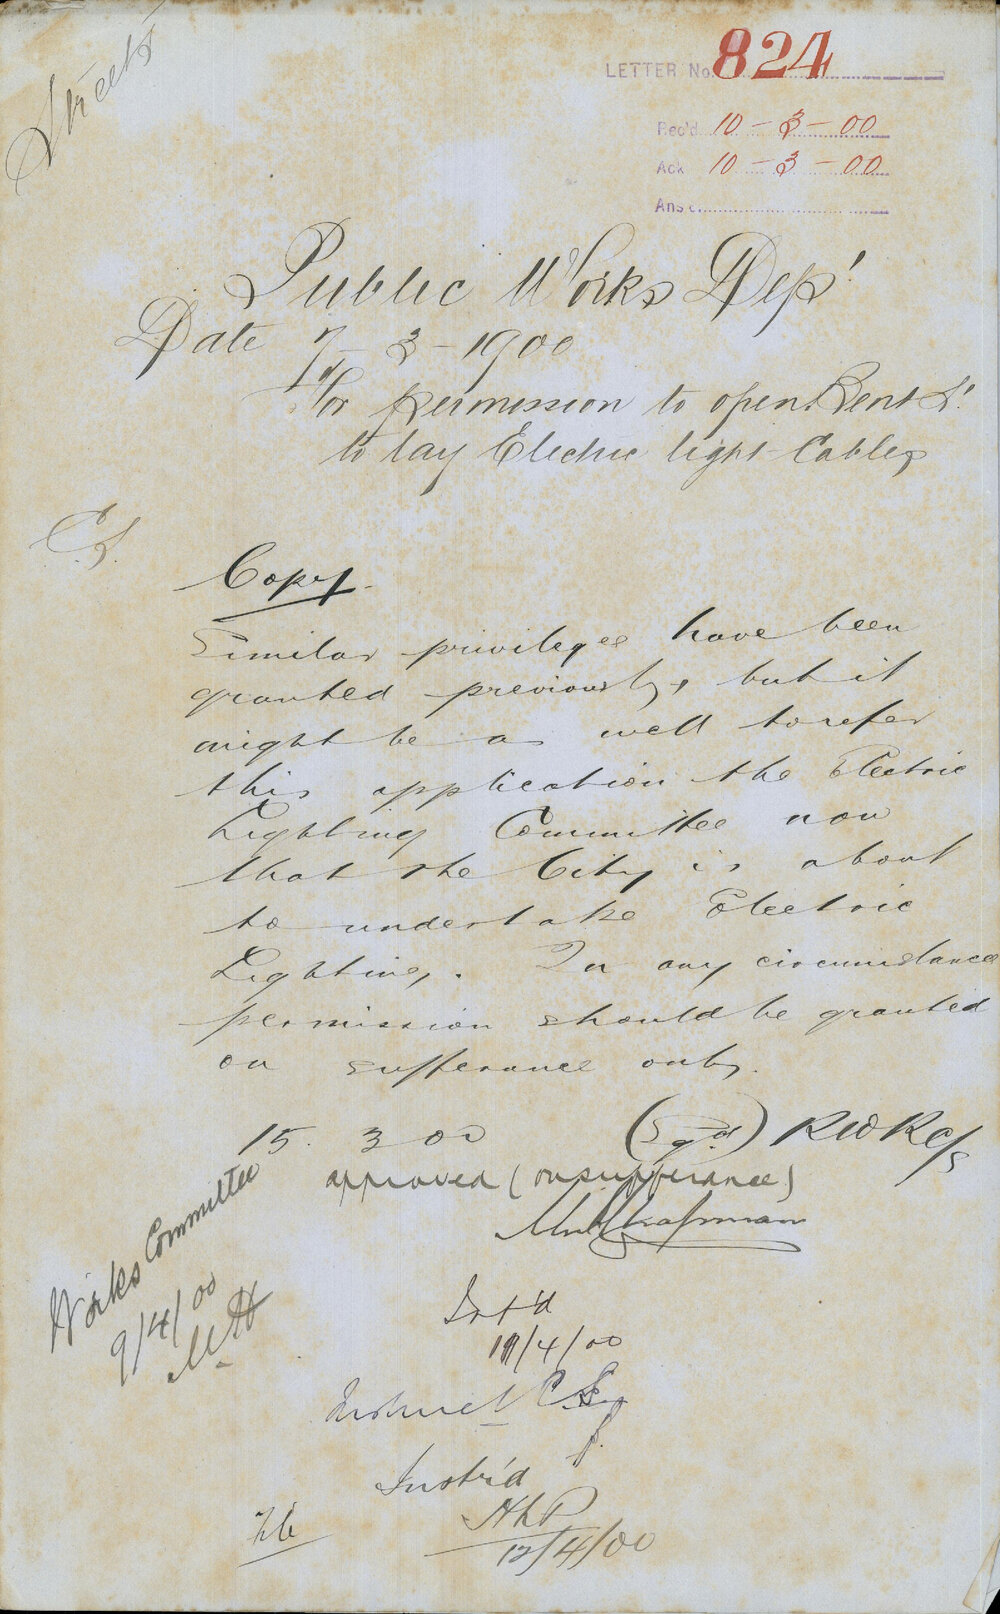 Streets
LETTER No. 824
Rec'd 10-3-00
Ack 10-3-00
Ans'd
Public Works Dept
Date 7-3-1900
For permission to open Kent St
to lay Electric light Cables
C.S.
Copy.
Similar privileges have been
granted previously, but it
might be as well to refer
this application the Electric
Lighting Committee now
that the City is about
to undertake Electric
Lighting. In any circumstance
permission should be granted
on sufferance only.
15. 3 00 (Sgd) RWR C/S
approved (on sufferance)
Chapman
Works Committee
9/4/00
Int'd
11/4/00
Instruct C.S.
Instr'd
HLP
12/4/00